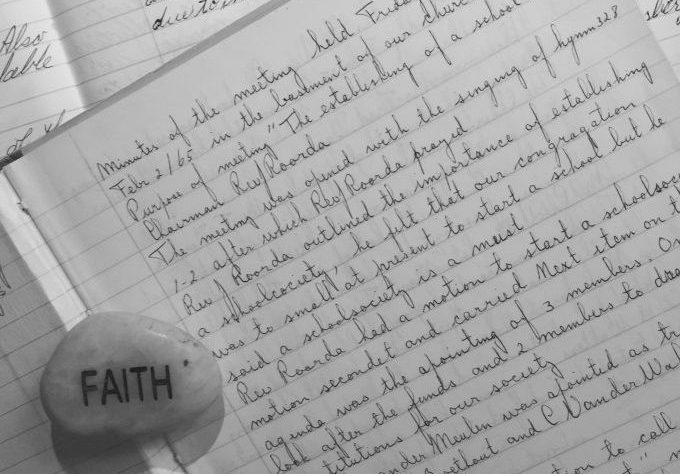 Also
lable
due to
Minutes of the meeting held Friday
Febr 2/65 in the basment of our church
Purpose of meeting "The establishing of a school
Chairman Rev/Roorda
The meeting was opened with the singing of hymn 328
1-2 after which Rev/Roorda prayed
Rev/ Roorda outlined the importance of establishing
a schoolcociety, he felt that our congragation
was to small at present to start a school but he
said a schoolsociety is a must
Rev Roorda led a motion to start a schoolsoc
motion secondet and carried Next item on t
agenda was the apointing of 3 members. On
look after the funds and 2 members to dra
titutions for our society
ander Meulen was apointed as tr
otbout and C VanderWal
tion to call
FAITH